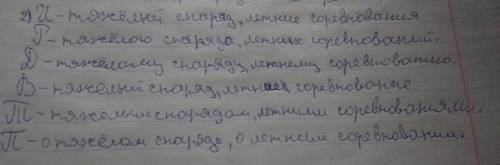 2) И - тяжёлый снаряд, летние соревнования
Г - тяжёлого снаряда, летних соревнований.
Д - тяжёлому снаряду, летнему соревнованию.
В - тяжёлый снаряд, летнее соревнование.
Т - тяжёлым снарядом, летними соревнованиями.
П - о тяжёлом снаряде, о летним соревнованим.